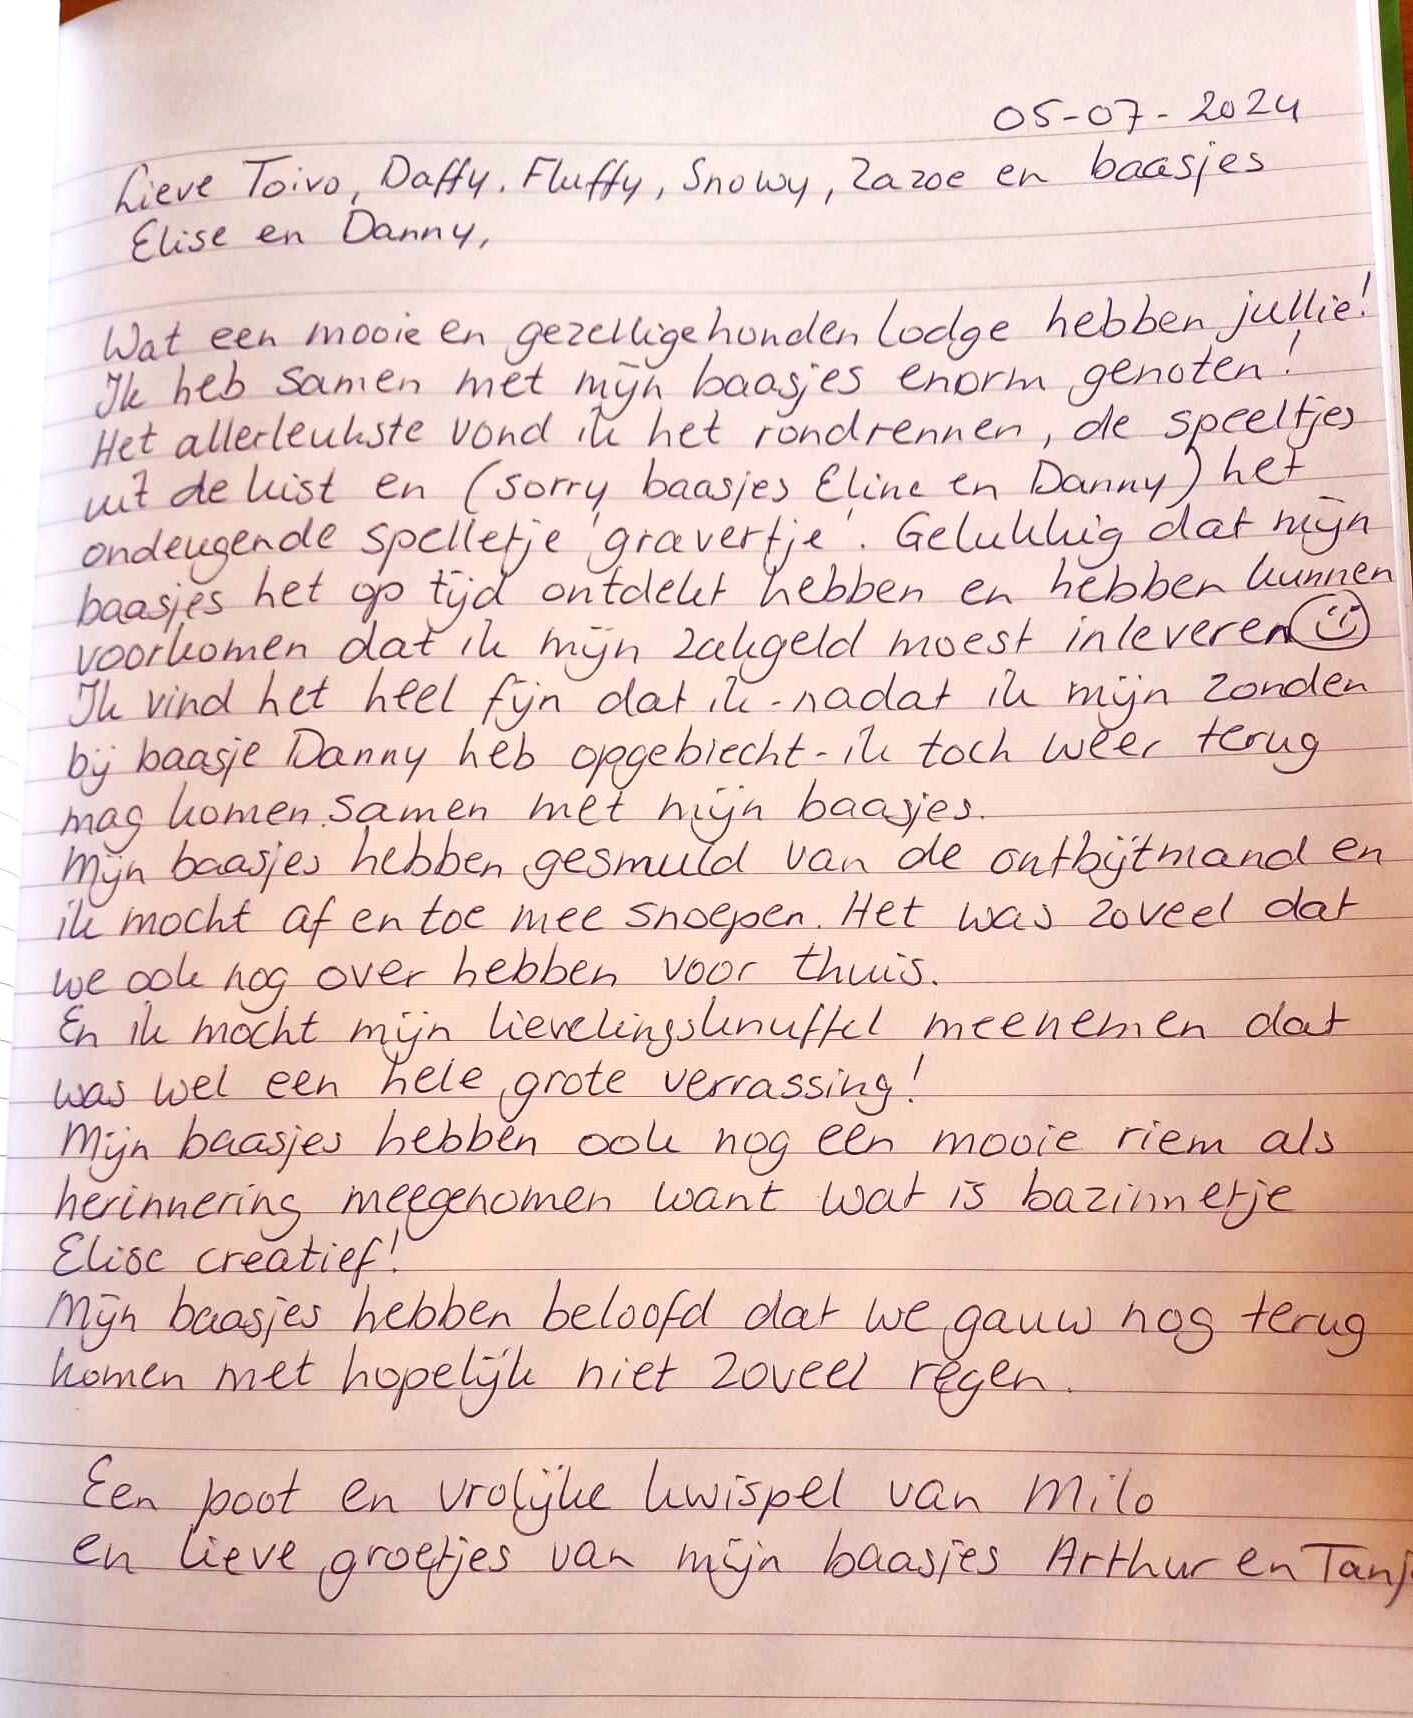 05-07-2024
Lieve Toivo, Daffy, Fluffy, Snowy, Zazoe en baasjes
Elise en Danny,
Wat een mooie en gezellige honden lodge hebben jullie!
Ik heb samen met mijn baasjes enorm genoten!
Het allerleukste vond ik het rondrennen, de speeltjes
uit de kist en (sorry baasjes Eline en Danny) het
ondeugende spelletje 'gravertje'. Gelukkig dat mijn
baasjes het op tijd ontdekt hebben en hebben kunnen
voorkomen dat ik mijn zakgeld moest inleveren ☺
Ik vind het heel fijn dat ik - nadat ik mijn zonden
bij baasje Danny heb opgebiecht - ik toch weer terug
mag komen samen met mijn baasjes.
Mijn baasjes hebben gesmuld van de ontbijtmand en
ik mocht af en toe mee snoepen. Het was zoveel dat
we ook nog over hebben voor thuis.
En ik mocht mijn lievelingsknuffel meenemen dat
was wel een hele grote verrassing!
Mijn baasjes hebben ook nog een mooie riem als
herinnering meegenomen want wat is bazinnetje
Elise creatief!
Mijn baasjes hebben beloofd dat we gauw nog terug
komen met hopelijk niet zoveel regen.
Een poot en vrolijke kwispel van Milo
en lieve groetjes van mijn baasjes Arthur en Tanj